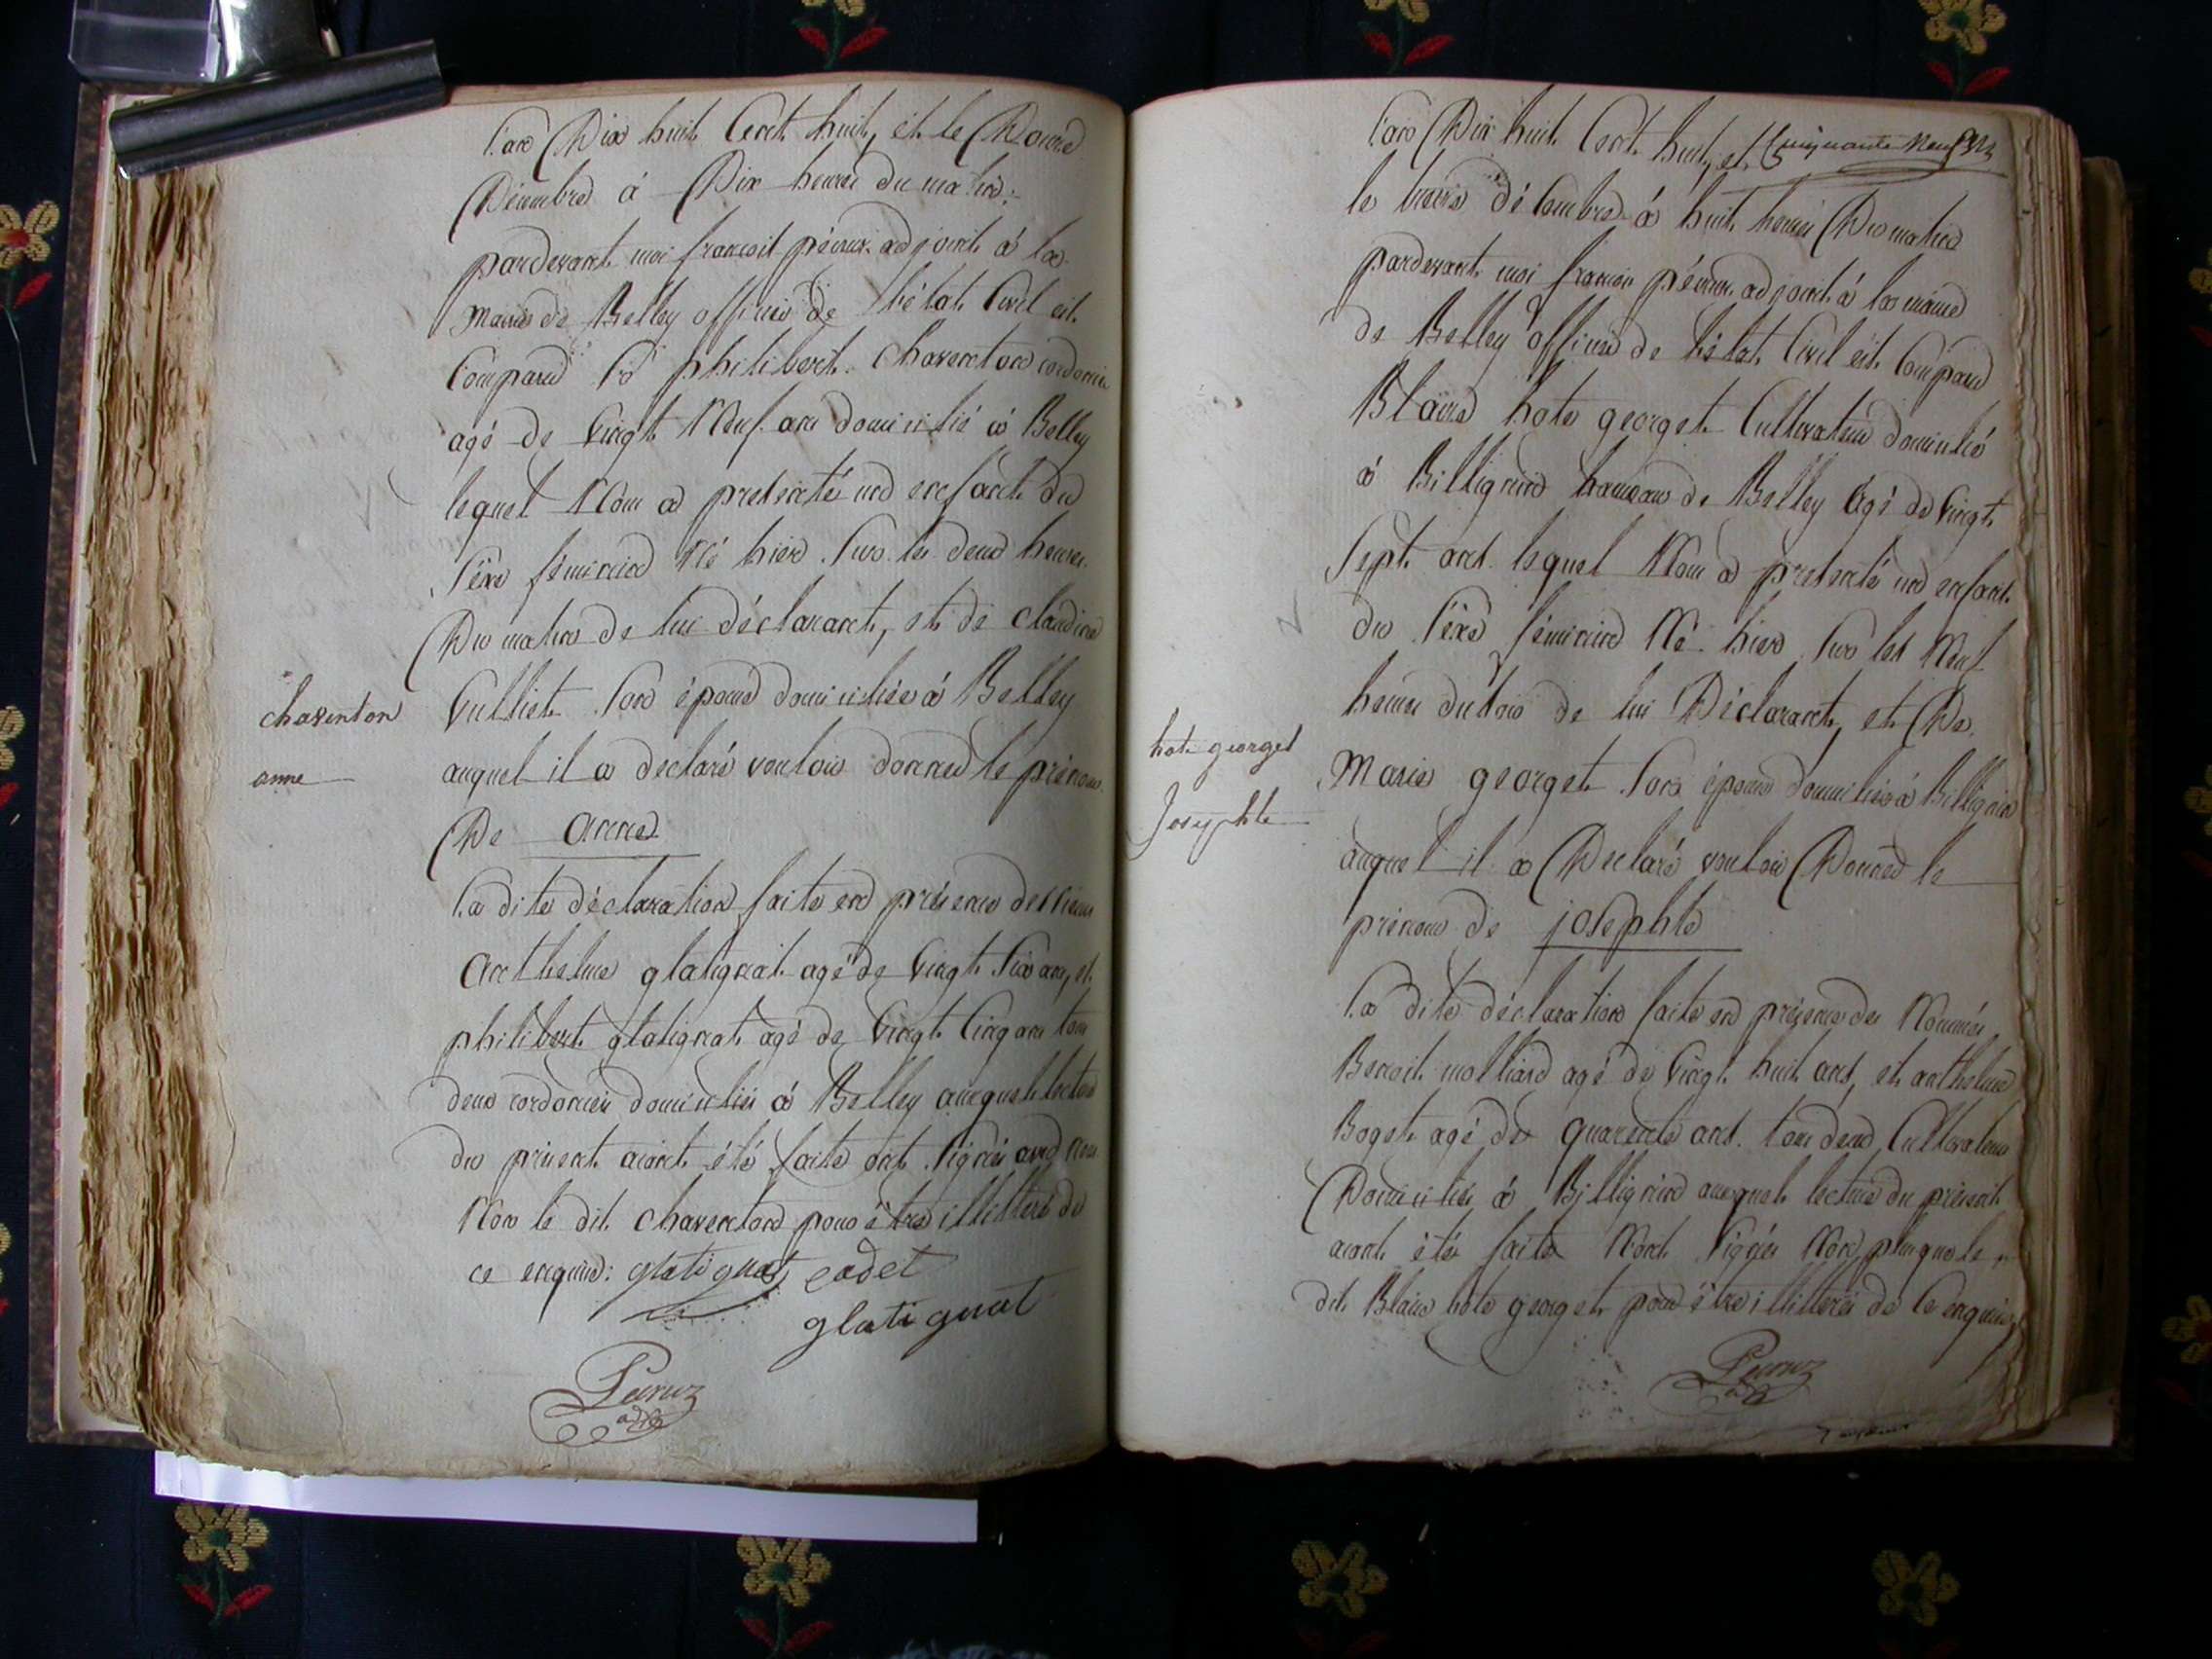 L'an Dix huit Cent huit, et le Douze
Décembre à Dix heures du matin:
pardevant moi françois péruz adjoint à la
mairie de Belley officier de l'état Civil est
Comparu Sr philibert Chaventon cordonier
agé de vingt Neuf ans domicilié à Belley
lequel Nous a presenté un enfant du
Sexe féminin Né hier sur les deux heures
Du matin de lui déclarant, et de claudine
Vulliet son épouse domiciliée à Belley
chaventon
auquel il a declaré vouloir donner le prénom
anne
De anne
La dite déclaration faite en présence des sieurs
Anthelme glatignat agé de vingt Six ans, et
philibert glatignat agé de vingt Cinq ans tous
deux cordoniers domiciliés à Belley auxquels lecture
du présent aiant été faite ont Signés avec nous
Non le dit chaventon pour être illittéré de
ce enquis: glatignat cadet
glatignat
Péruz
adjt
Cinquante Neuf
L'an Dix huit Cent huit, et
le treize décembre à huit heures Du matin
pardevant moi françois péruz adjoint à la mairie
de Belley officier de l'état Civil est Comparu
Blaise hote georget Cultivateur domicilié
à Billignin hameau de Belley agé de vingt
Sept ans lequel Nous a presenté un enfant
du Sexe féminin Né hier sur les Neuf
heures du soir de lui Déclarant, et De
hote georget
Marie georget son épouse domiciliée à Billignin
Josephte
auquel il a Declaré vouloir Donner le
prénom de josephte
La dite déclaration faite en présence des Nommés
Benoit molliard agé de vingt huit ans, et anthelme
Boget agé de quarente ans tous deux Cultivateurs
Domiciliés à Billignin auxquels lecture du présent
aiant été faite N'ont Signés Non plus que le
dit Blaise hote georget pour être illittérés de Ce enquis
Péruz
adjt